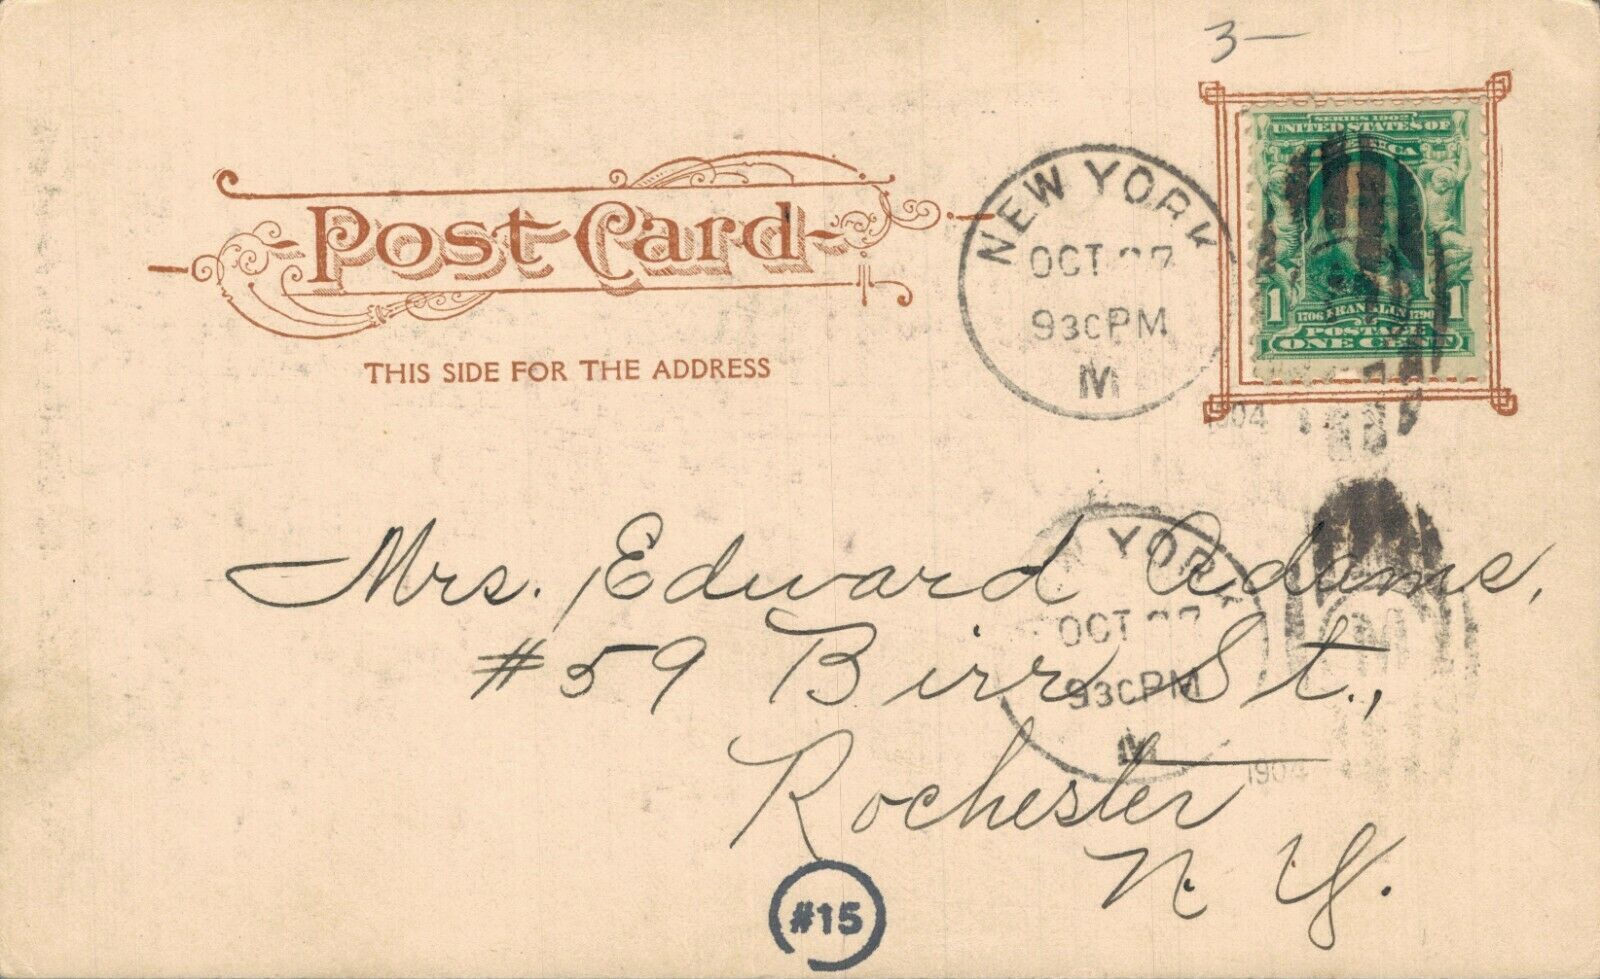 3—
SERIES 1902
UNITED STATES OF
AMERICA
Post Card
NEW YORK
OCT 27
930PM
M
1904
1 1
1706 FRANKLIN 1790
POSTAGE
ONE CENT
THIS SIDE FOR THE ADDRESS
Mrs. Edward Adams,
#59 Birr St.,
Rochester
N. Y.
YORK
OCT 27
930PM
M
1904
M
#15